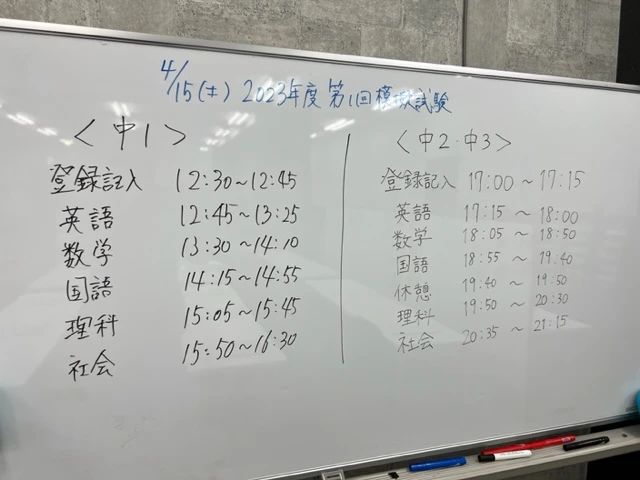 4/15(土) 2023年度第1回模擬試験
<中1>
登録記入 12:30~12:45
英語 12:45~13:25
数学 13:30~14:10
国語 14:15~14:55
理科 15:05~15:45
社会 15:50~16:30
<中2・中3>
登録記入 17:00~17:15
英語 17:15~18:00
数学 18:05~18:50
国語 18:55~19:40
休憩 19:40~19:50
理科 19:50~20:30
社会 20:35~21:15